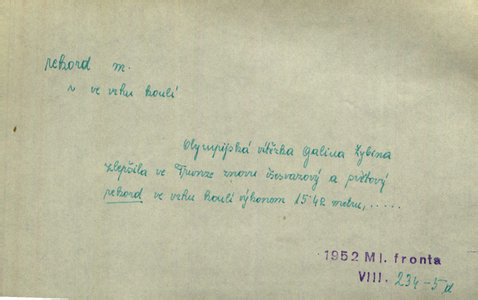 rekord m.
v ve vrhu koulí
Olympijská vítězka Galina Zybina
zlepšila ve Frunze znovu všesvazový a světový
rekord ve vrhu koulí výkonem 15'42 metru, .....
1952 Ml. fronta
VIII. 234-5d